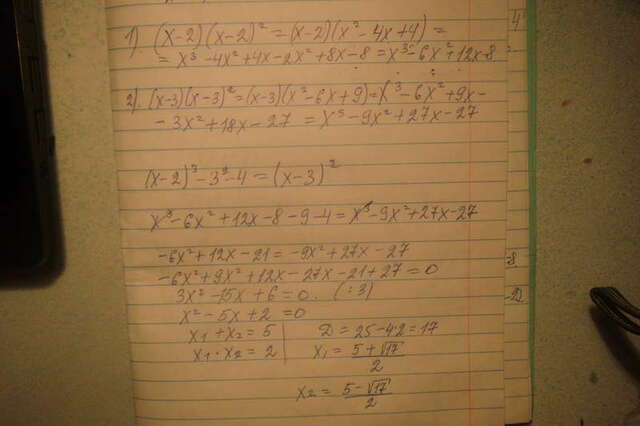 1). (x-2)(x-2)² = (x-2)(x²-4x+4) =
= x³-4x²+4x-2x²+8x-8 = x³-6x²+12x-8
2). (x-3)(x-3)² = (x-3)(x²-6x+9) = x³-6x²+9x-
-3x²+18x-27 = x³-9x²+27x-27
(x-2)³-3²-4 = (x-3)²
x³-6x²+12x-8-9-4 = x³-9x²+27x-27
-6x²+12x-21 = -9x²+27x-27
-6x²+9x²+12x-27x-21+27 = 0
3x²-15x+6 = 0. (:3)
x²-5x+2 = 0
x₁+x₂ = 5 D = 25-4·2 = 17
x₁·x₂ = 2 x₁ = (5+√17)/2
x₂ = (5-√17)/2